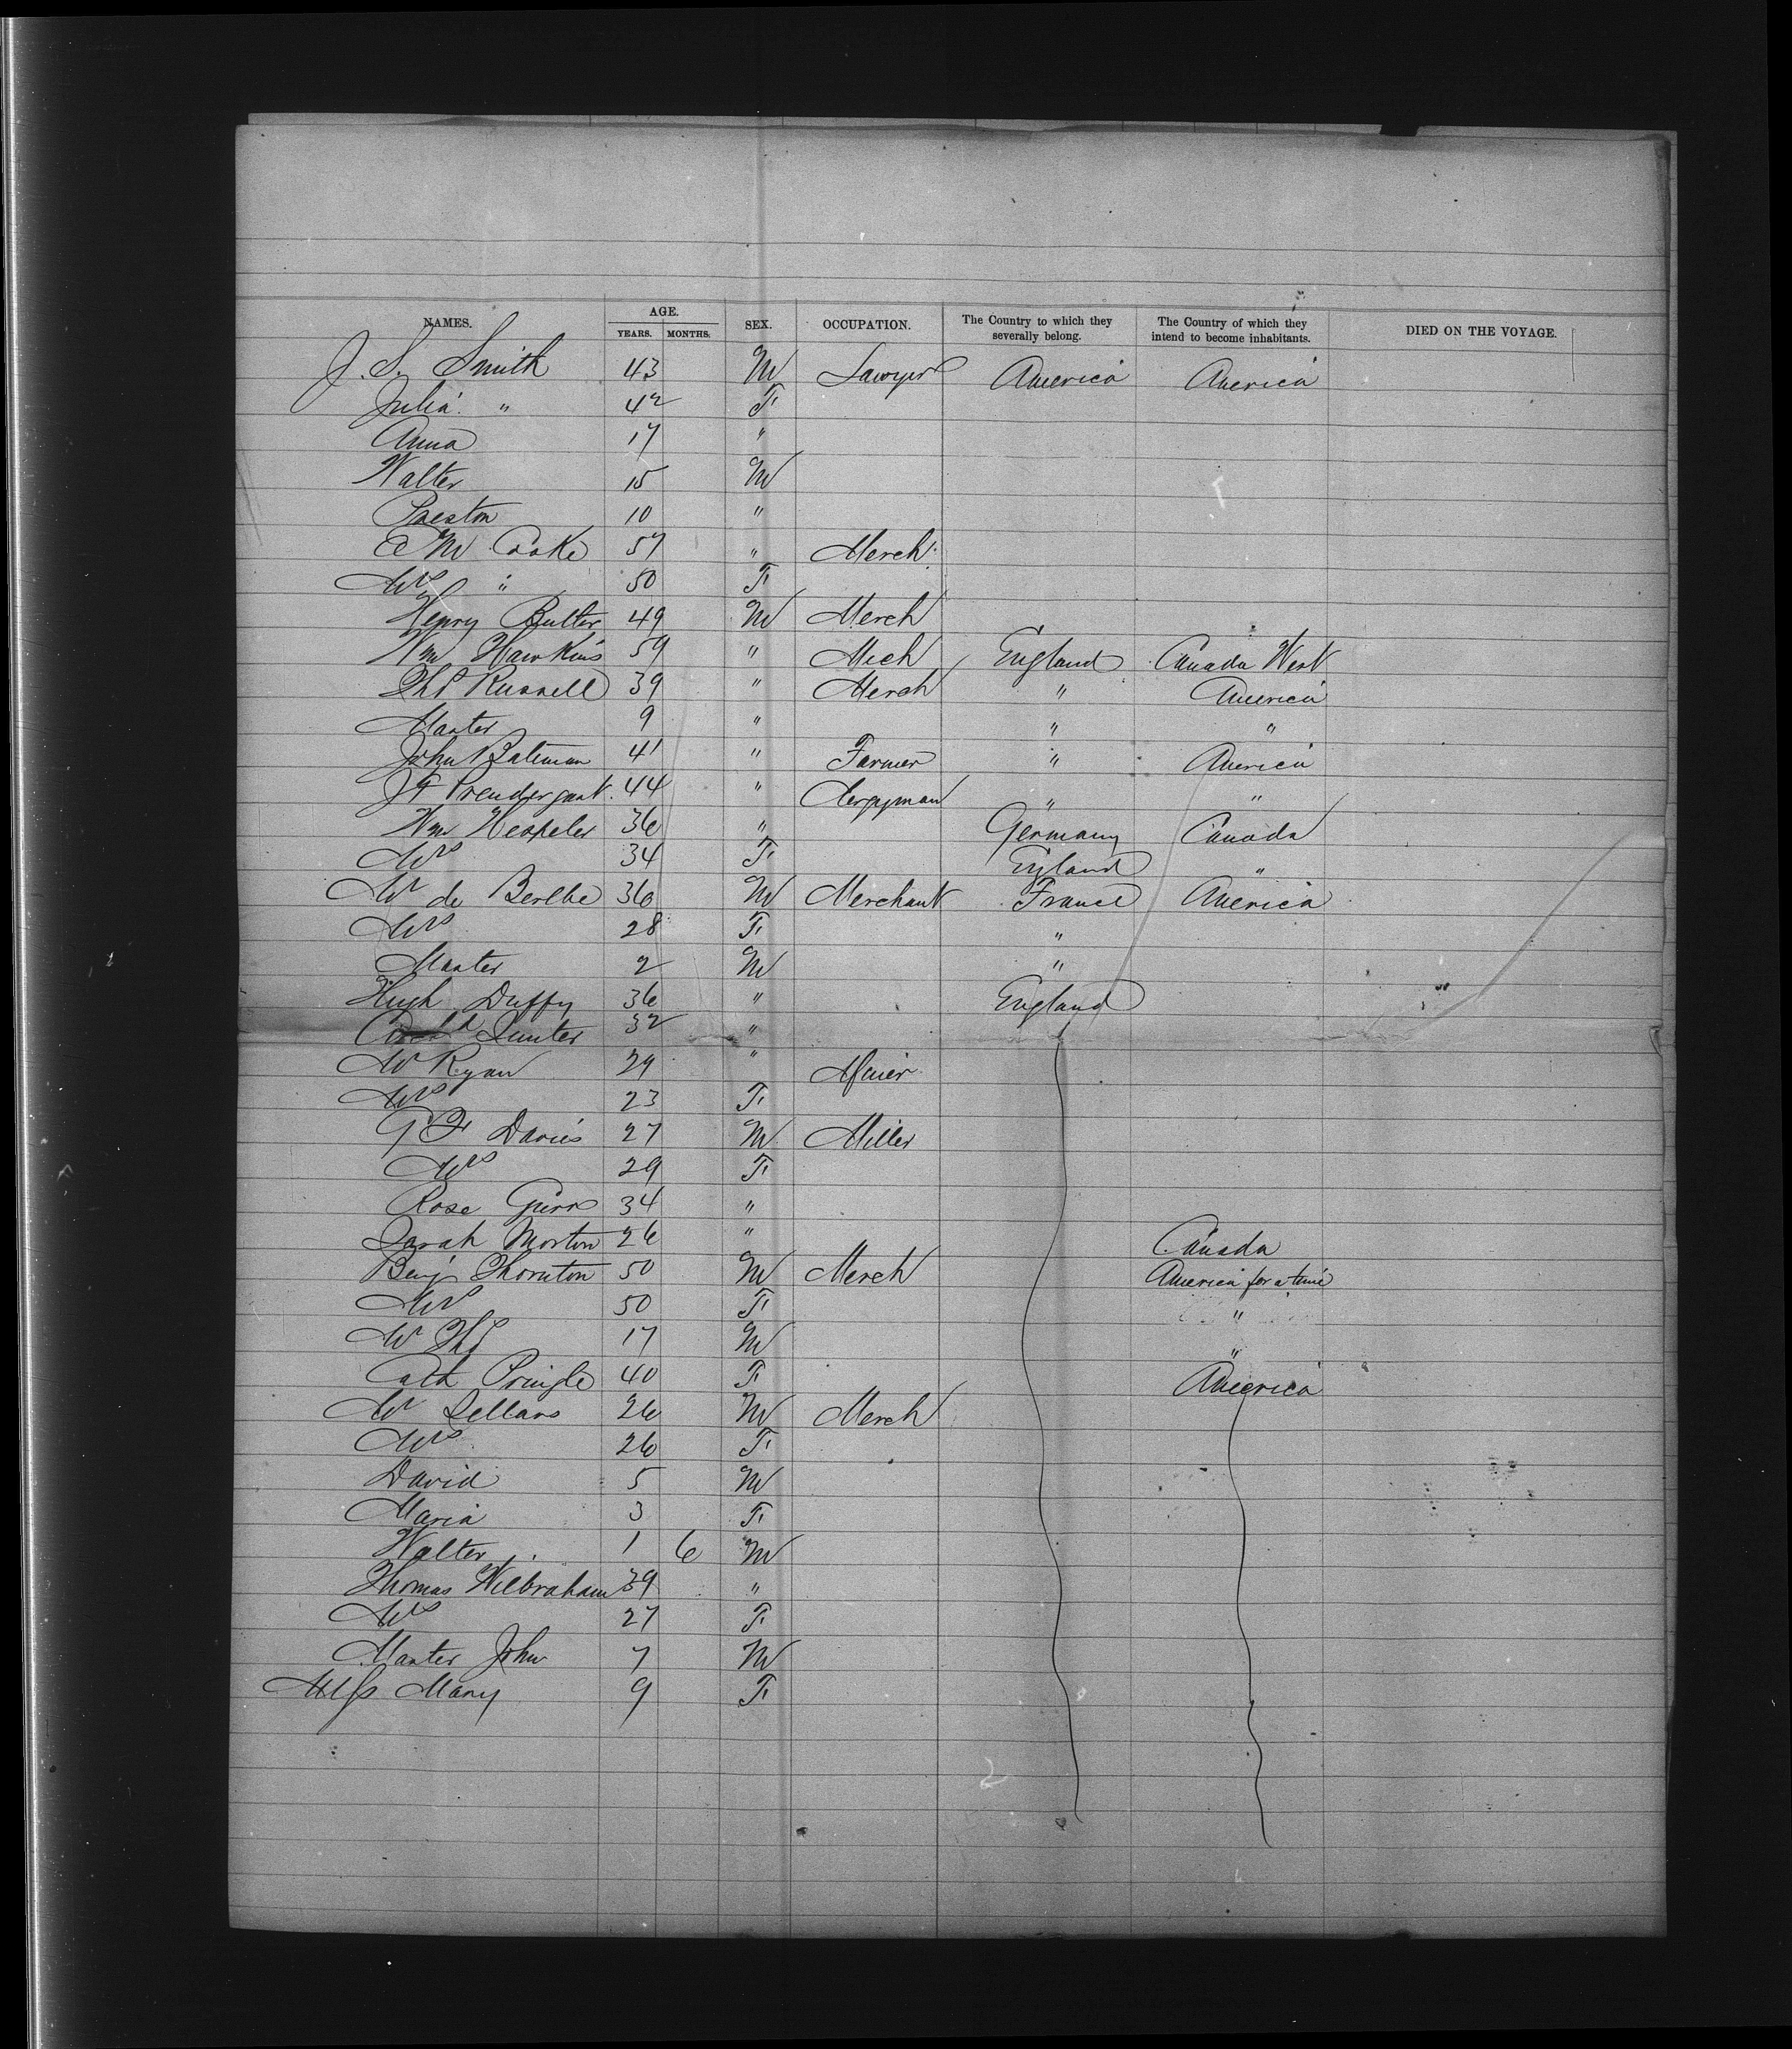 NAMES. AGE. SEX. OCCUPATION. The Country to which they severally belong. The Country of which they intend to become inhabitants. DIED ON THE VOYAGE.
YEARS. MONTHS.
J. S. Smith 43 M Lawyer America America
Julia " 42 F
Anna 17 "
Walter 15 M
Preston 10 "
C M Cooke 57 " Merch.
Mrs " 50 F
Henry Butler 49 M Merch
Wm Hawkins 59 " Mech England Canada West
Ths Russell 39 " Merch " America
Master 9 " " "
John Bateman 41 " Farmer " America
J F Prendergast 44 " Clergyman " "
Wm Hespeler 36 " Germany Canada
Mrs 34 F England "
Mr de 36 M Merchant France America
Mrs 28 F "
Master 2 M "
Hugh Duffy 36 " England
32 "
Mr Ryan 29 "
Mrs 23 F
G F Davies 27 M Miller
Mrs 29 F
Rose 34 "
Sarah Morton 26 " Canada
Benj Thornton 50 M Merch America for a time
Mrs 50 F "
Mr Ths 17 M "
Cath Pringle 40 F America
Mr Sellars 26 M Merch
Mrs 26 F
David 5 M
Maria 3 F
Walter 1 6 M
Thomas Wilbraham 39 "
Mrs 27 F
Master John 7 M
Miss Mary 9 F